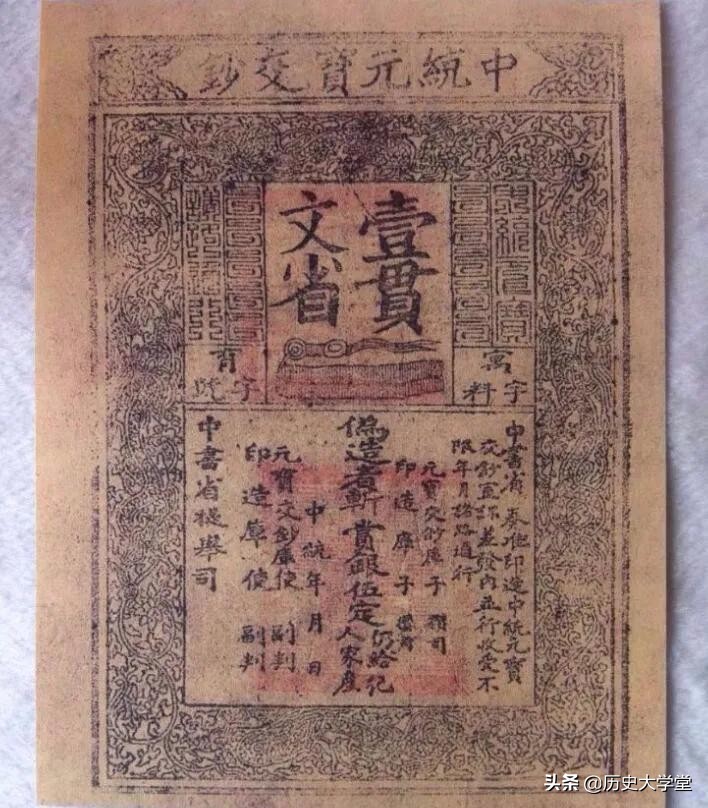 中統元寶交鈔
壹貫
文省
寓
字料
育
字號
中書省 奏准印造中統元寶
交鈔宣課差發內並行收受不
限年月諸路通行
元寶交鈔庫子 攢司
印造庫子 攢司
偽造者斬 賞銀伍定仍給犯人家產
中統年月日
元寶交鈔庫使 副判
印造庫使 副判
中書省提舉司
头条 @历史大学堂